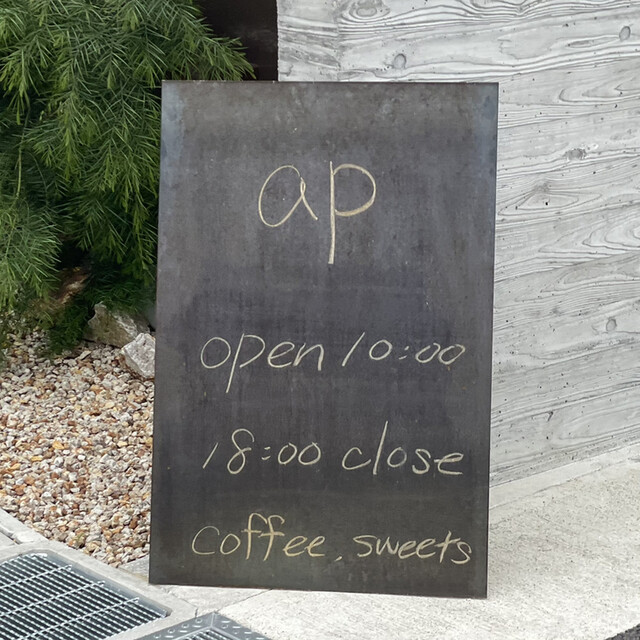 ap
open 10:00
18:00 close
coffee, sweets